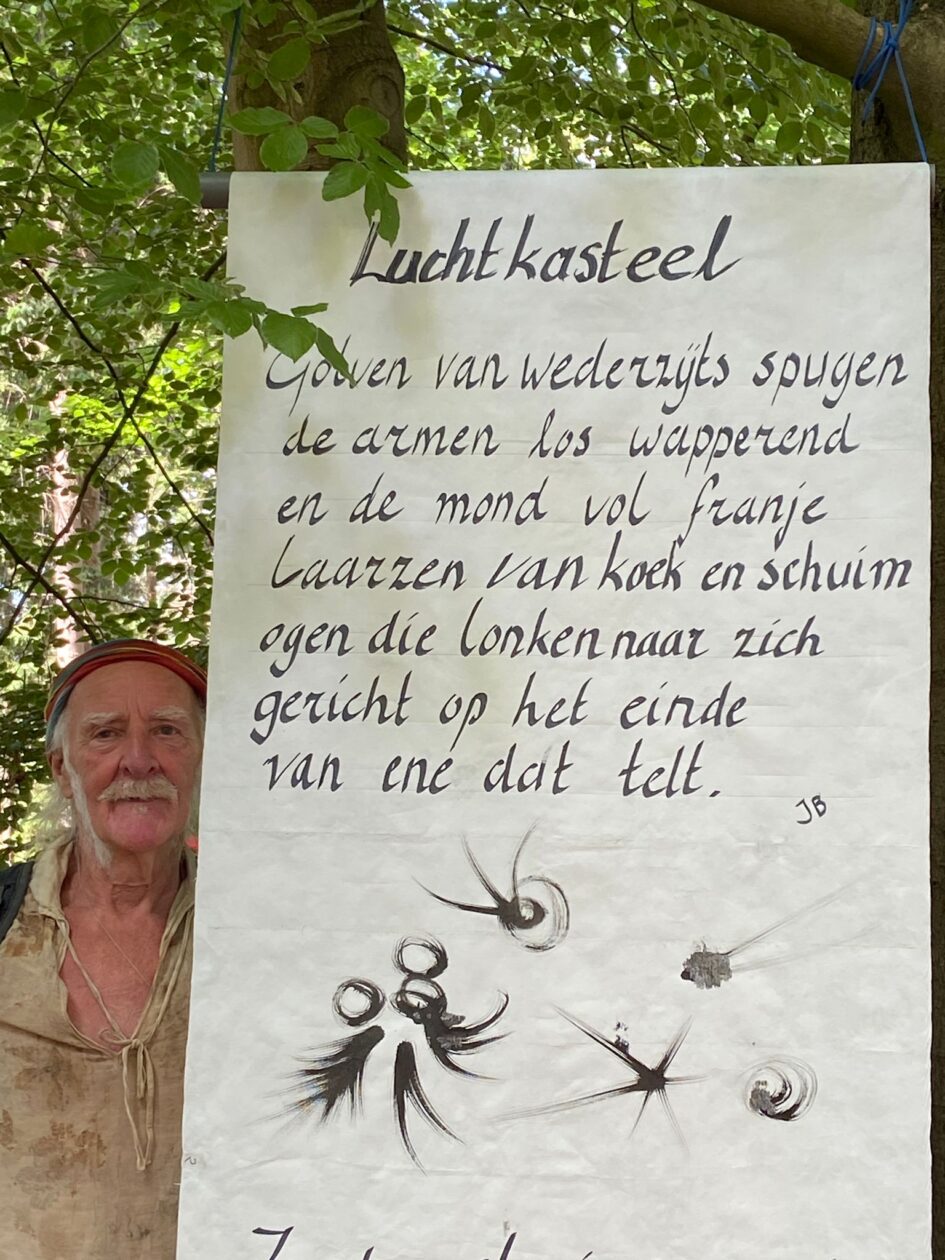 Luchtkasteel
Golven van wederzijts spugen
de armen los wapperend
en de mond vol franje
Laarzen van koek en schuim
ogen die lonken naar zich
gericht op het einde
van ene dat telt.
JB